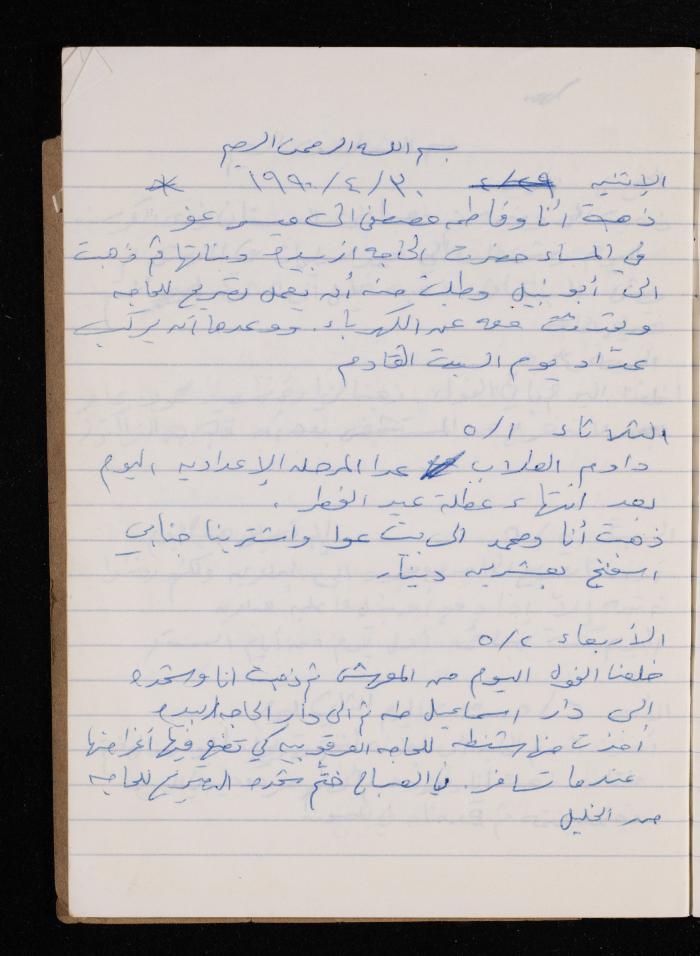 بسم الله الرحمن الرحيم
الإثنين ٣٠/٤/١٩٩٠
ذهبت أنا وفاطمه مصطفى الى
في المساء حضرت الحاجه ازبيده وبناتها ثم ذهبت
الى أبو نبيل وطلبت منه أن يعمل تصريح للحاجه
وتحدثت معه عن الكهرباء. ووعدها أنه يركب
عداد يوم السبت القادم
الثلاثاء ٥/١
داوم الطلاب عدا المرحله الإعداديه اليوم
بعد انتهاء عطلة عيد الفطر.
ذهبت أنا ومحمد الى بيت عوا واشترينا جنابي
اسفنج بعشرين دينار
الأربعاء ٥/٢
خلعنا الفول اليوم من المعرش ثم ذهبت أنا وشحده
الى دار اسماعيل طه ثم الى دار الحاجه ازبيده
أخذت منها شنطه للحاجه العرقوبيه كي تضع فيها أغراضها
عندما تسافر. في الصباح ختّم شحده التصريح للحاجه
من الخليل